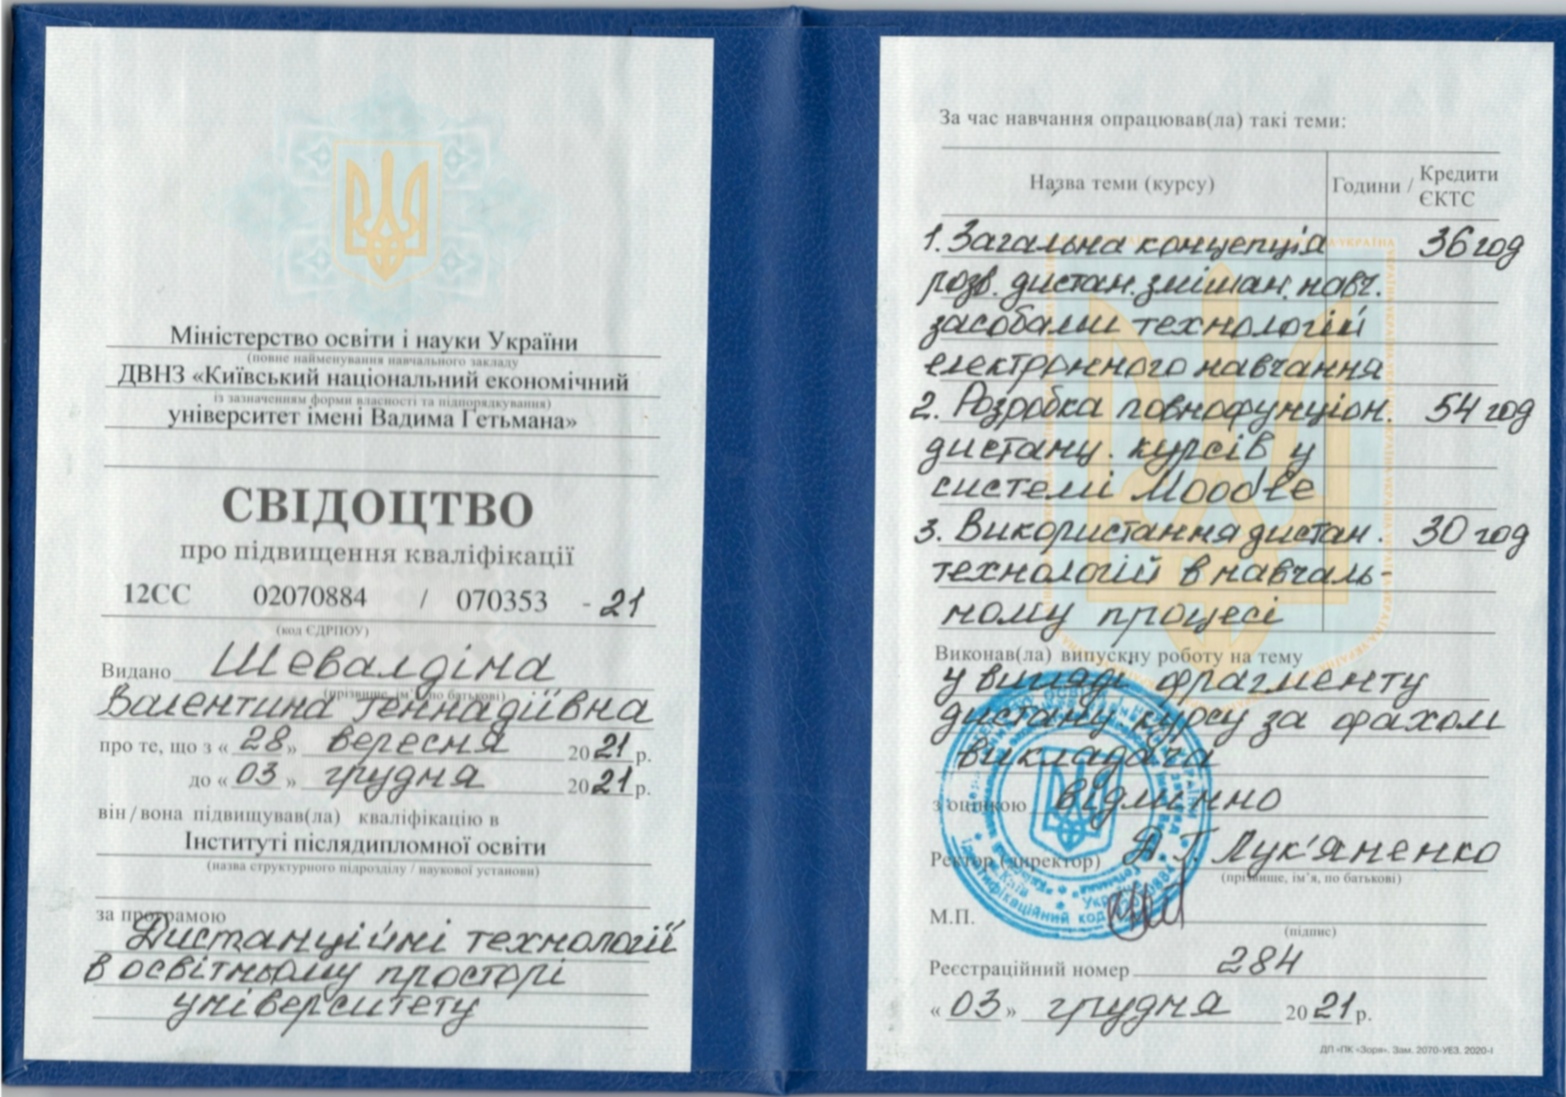 Міністерство освіти і науки України
(повне найменування навчального закладу
ДВНЗ «Київський національний економічний
із зазначенням форми власності та підпорядкування)
університет імені Вадима Гетьмана»
СВІДОЦТВО
про підвищення кваліфікації
12СС 02070884 / 070353 - 21
(код ЄДРПОУ)
Видано Шевалдіна
(прізвище, ім'я, по батькові)
Валентина Геннадіївна
про те, що з « 28 » вересня 2021 р.
до « 03 » грудня 2021 р.
він/вона підвищував(ла) кваліфікацію в
Інституті післядипломної освіти
(назва структурного підрозділу / наукової установи)
за програмою
Дистанційні технології
в освітньому просторі
університету
За час навчання опрацював(ла) такі теми:
Назва теми (курсу) Години / Кредити ЄКТС
1. Загальна концепція 36 год
розв. дистан. змішан. навч.
засобами технологій
електронного навчання
2. Розробка повнофункціон. 54 год
дистанц. курсів у
системі Moodle
3. Використання дистан. 30 год
технологій в навчаль-
ному процесі
Виконав(ла) випускну роботу на тему
у вигляді фрагменту
дистанц. курсу за фахом
викладача
з оцінкою відмінно
Ректор (директор) Д.Г. Лук'яненко
(прізвище, ім'я, по батькові)
М.П.
(підпис)
Реєстраційний номер 284
« 03 » грудня 2021 р.
ДП «ПК «Зоря». Зам. 2070-УЕЗ. 2020-І